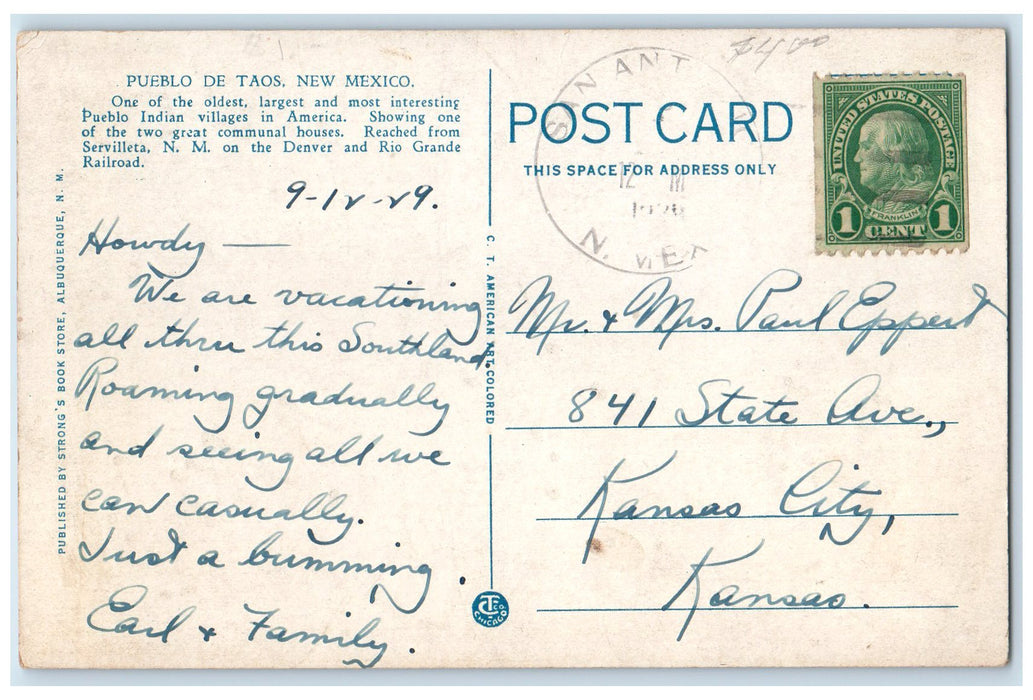 PUEBLO DE TAOS, NEW MEXICO.
One of the oldest, largest and most interesting
Pueblo Indian villages in America. Showing one
of the two great communal houses. Reached from
Servilleta, N. M. on the Denver and Rio Grande
Railroad.
9-12-29.
Howdy —
We are vacationing
all thru this Southland.
Roaming gradually
and seeing all we
can casually.
Just a bumming.
Earl & Family.
PUBLISHED BY STRONG'S BOOK STORE, ALBUQUERQUE, N. M.
C. T. AMERICAN ART COLORED
CT CO
CHICAGO
POST CARD
THIS SPACE FOR ADDRESS ONLY
SAN ANT
12 M
N. MEX
$4.00
UNITED STATES POSTAGE
FRANKLIN
1 CENT 1
Mr. & Mrs. Paul Eppert
841 State Ave.,
Kansas City,
Kansas.